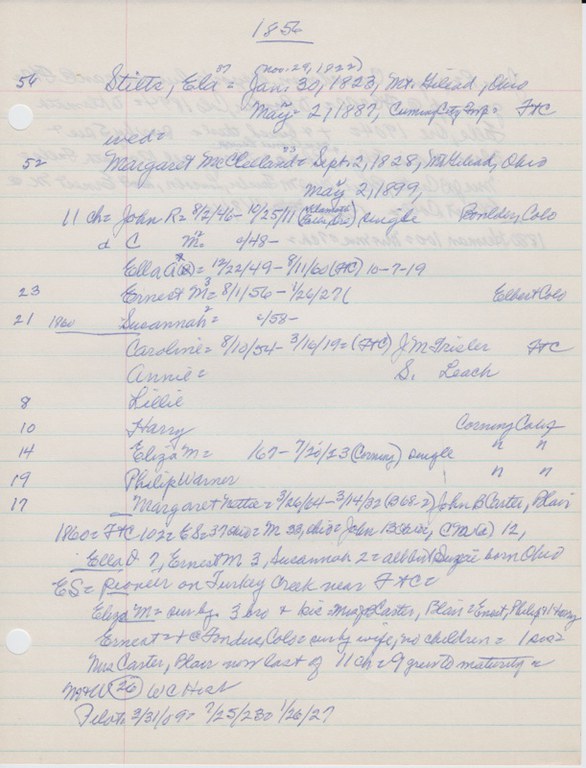 1856
37 (Nov. 29, 1822)
54 Stilts, Ela = Jan. 30, 1823, Mt. Gilead, Ohio
May 2, 1887, Cuming City, Ft C
wed =
52 Margaret McClelland = Sept. 2, 1828, Mt Gilead, Ohio
May 2, 1899,
11 ch = John R = 8/2/46 - 10/25/11 single Boulder, Colo
d C M = c/48 -
Ella A = 12/22/49 - 8/11/60 (Ft C) 10-7-19
23 Ernest M 3 = 8/1/56 - 1/26/27 ( Elbert Colo
21 1860 Susannah 2 = c/58 -
Caroline = 8/10/54 - 3/16/19 = (Ft C) J M Frisler Ft C
Annie = S. Leach
8 Lillie
10 Harry Corning Calif
14 Eliza M = 167 - 7/20/23 (Corning) single " "
19 Philip Warner " "
17 Margaret Nettie = 3/26/64 - 3/14/32 (B 68-2) John B Carter, Blair
1860 = Ft C 102 = ES = 37 Ohio = M 33, Ohio = John 13 12,
Ella 7, Ernest M 3, Susannah 2 = born Ohio
ES = pioneer on Turkey Creek near Ft C =
Eliza M = surby. 3 bro + sis = Carter, Blair = Ernest, Philip + Harry
Ernest = Fondis, Colo = surby wife, no children =
Mrs Carter, Blair now last of 11 ch = 9 grew to maturity =
(26) W C Host
Pilot = 3/31/09 = 7/25/23 = 1/26/27